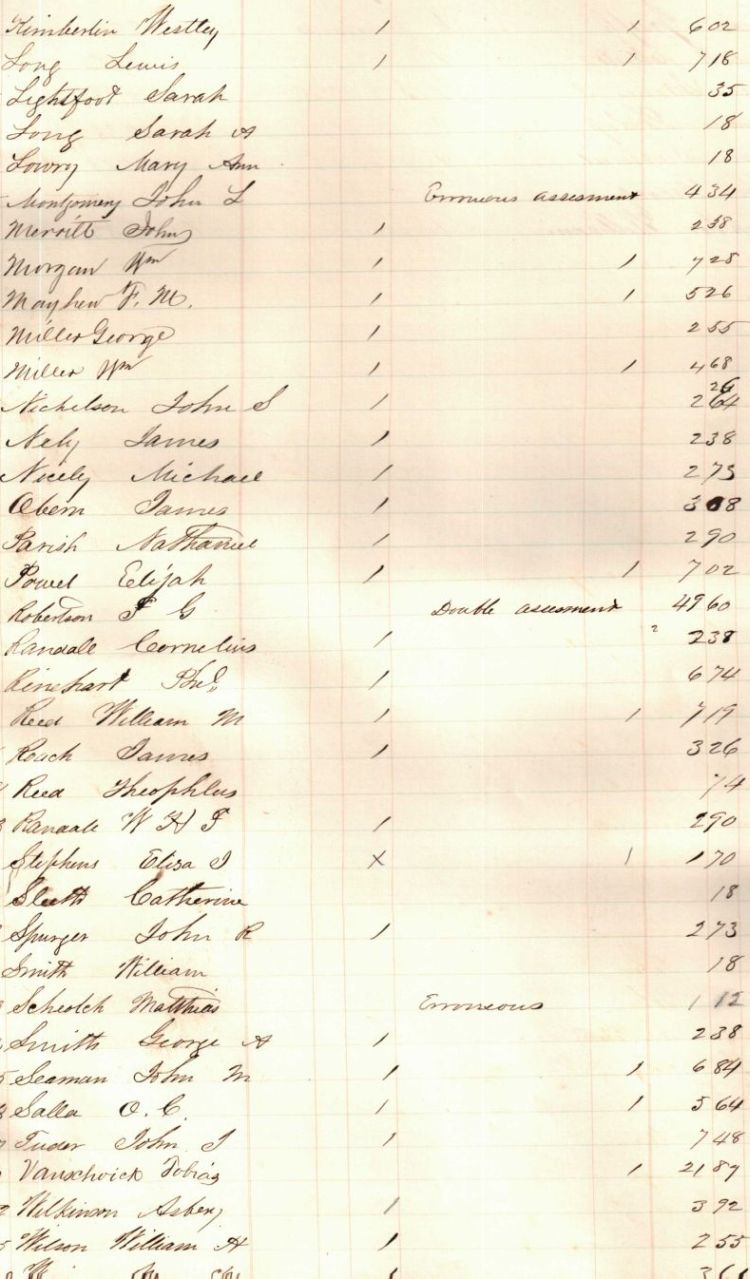 Kimberlin Westley / / 602
Long Lewis / / 718
Lightfoot Sarah 35
Long Sarah A 18
Lowry Mary Ann 18
Montgomery John L Erroneous assesment 434
Merritt John / 238
Morgan Wm / / 728
Mayhew F. M. / / 526
Miller George / 255
Miller Wm / / 468
Nichelson John S / 264
Nely James / 238
Nicely Michael / 273
Obern James / 308
Parish Nathaniel / 290
Powel Elijah / / 702
Robertson F G Double assesment 4960
Randale Cornelius / 238
Rinehart / 674
Reed William M / / 719
Roach James / 326
Reed Theophlus 74
Randale W H F / 290
Stephens Eliza J x / 170
Sleeth Catherine 18
Spurger John R / 273
Smith William 18
Scheolch Matthias Erroneous 112
Smith George A / 238
Seaman John M / / 684
Salla O. C. / / 564
Tuder John J / 748
Vanschoick Tobias / 2187
Wilkinson Asbery / 392
Wilson William H / 255